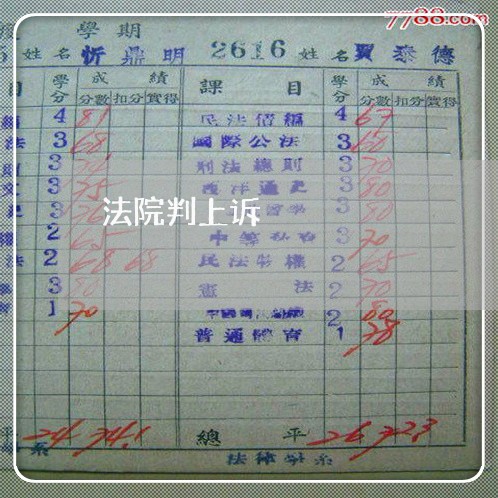 7788.com
度 學期
5 姓名 忻鼎明 2616 姓名 賈泰德
目 學分 成績 課目 學分 成績
分數 扣分 實得 分數 扣分 實得
4 81 民法債編 4 67
法 3 68 國際公法 3 60
3 刑法總則 3 70
文 3 75 西洋通史 3 80
史 3 3 80
法院判上诉
權 2 65 3 70
法 2 68 68 民法物權 2 65
3 80 憲法 2 70
育 1 70 2 80
普通體育 1 78
平 24 74.1 總平 26 72.3
系 法律學系